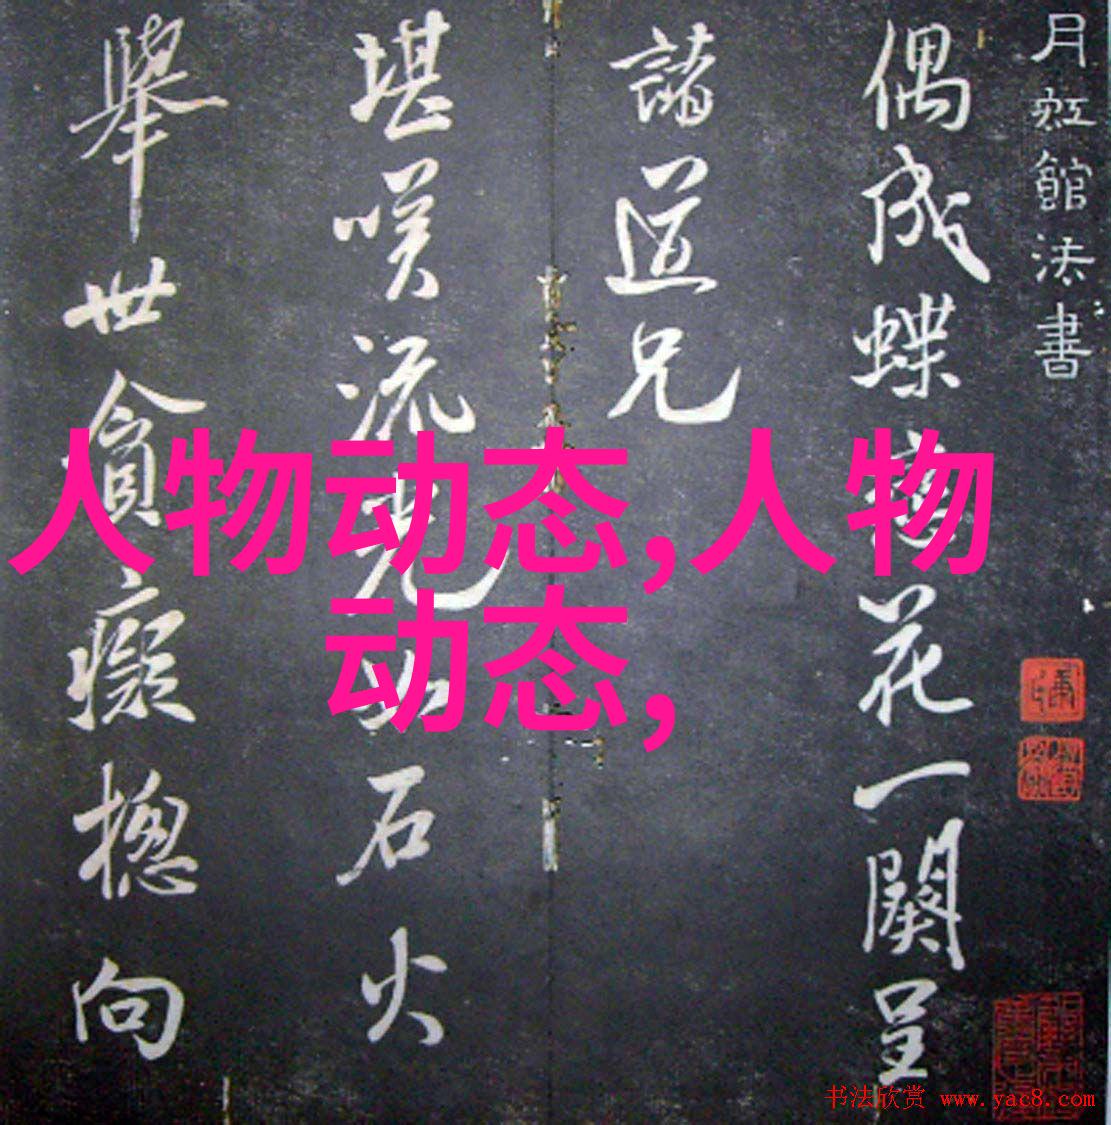 月虹館法書
偶成蝶花一闋呈
諸道兄
堪咲流光石火
舉世貪癡摠向
人物动态,人物
动态,
书法欣赏 www.yac8.com